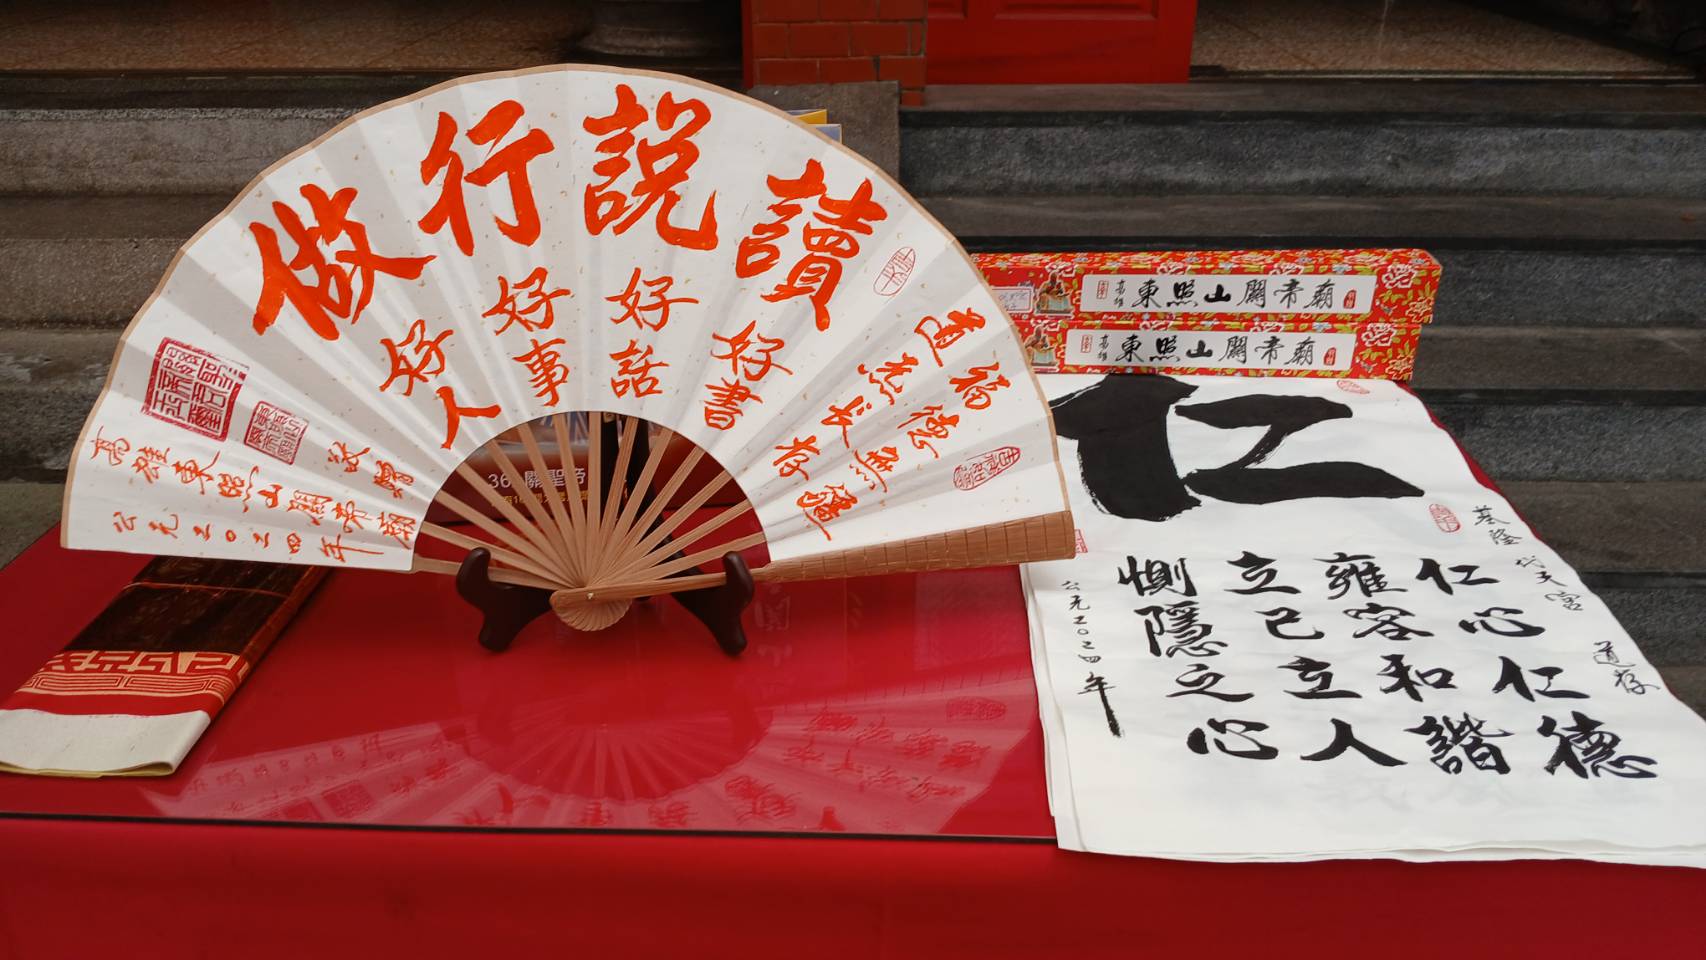 讀好書
說好話
行好事
做好人
福德無疆
道杰長存
敬贈
高雄東照山關帝廟
公元二〇二四年
36
關聖帝
高雄東照山關帝廟
高雄東照山關帝廟
仁
基隆代天宮
道存
仁心仁德
雍容和諧
立己立人
惻隱之心
公元二〇二四年